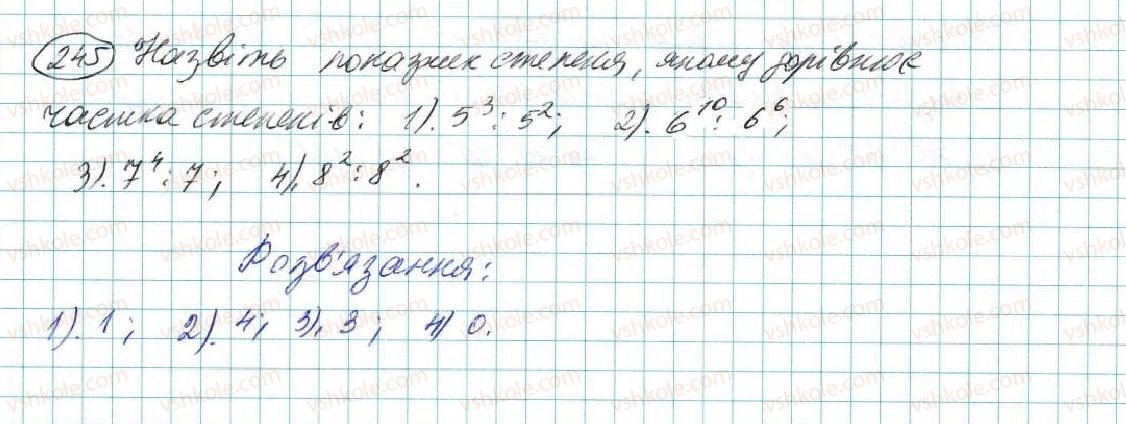 245 Назвіть показник степеня, якому дорівнює
частка степенів: 1). 5³ : 5²; 2). 6¹⁰ : 6⁶;
3). 7⁴ : 7; 4). 8² : 8².
Розв'язання:
1). 1; 2). 4; 3). 3; 4) 0.